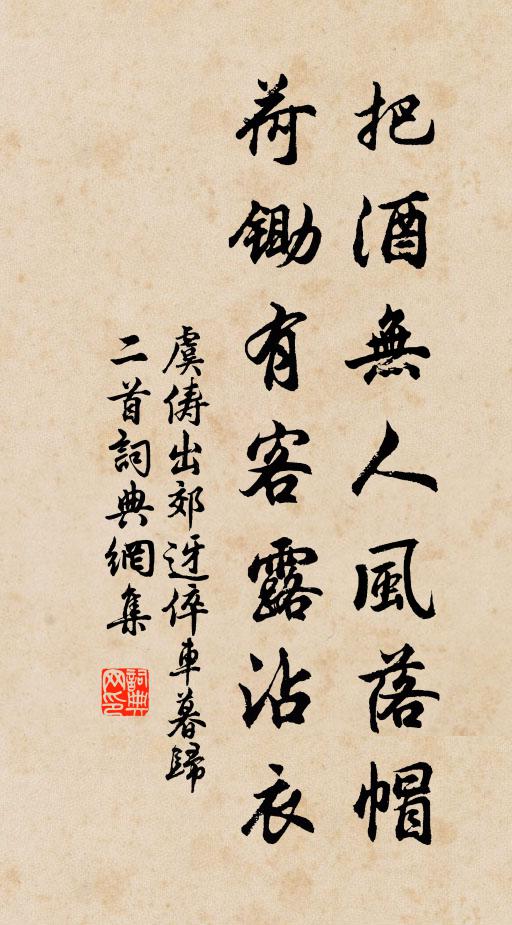 把酒無人風落帽
荷鋤有客露沾衣
虞儔出郊迓倅車暮歸
二首詞典網集
詞典
网印